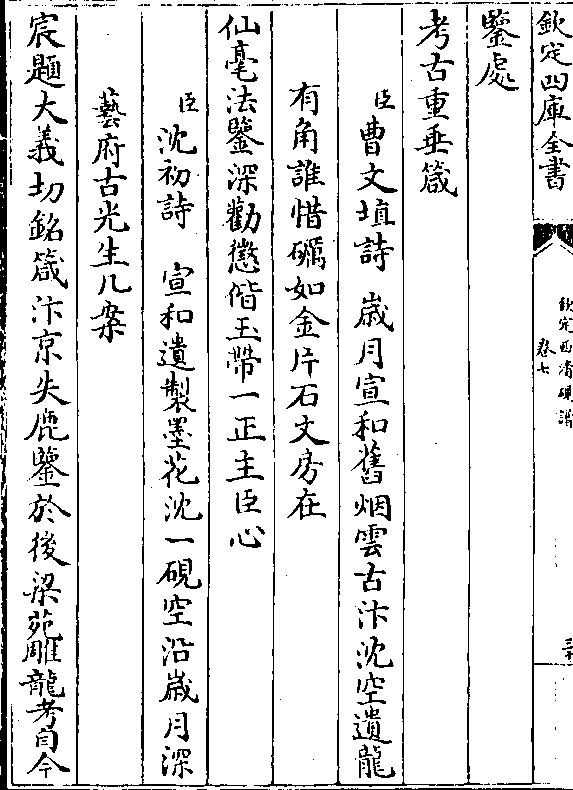 欽定四庫全書
欽定西清硯譜
卷七
鑒處
考古重垂箴
臣曹文埴詩 歲月宣和舊烟雲古汴沈空遺龍
有角誰惜礪如金片石文房在
仙毫法鑒深勸懲偕玉帶一正主臣心
臣沈初詩 宣和遺製墨花沈一硯空沿歲月深
藝府古光生几案
宸題大義切銘箴汴京失鹿鑒於後梁苑雕龍考自今